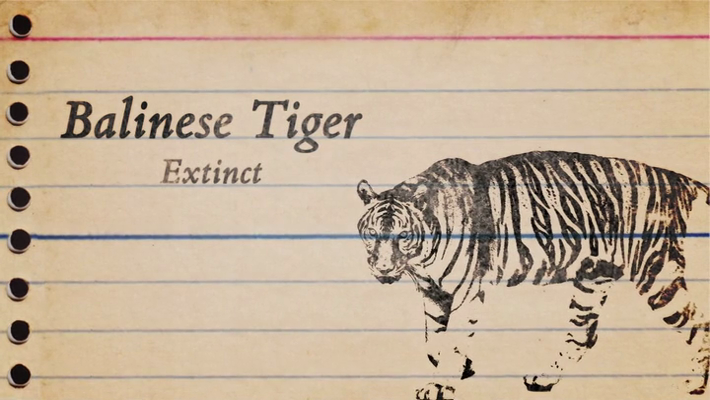 Balinese Tiger
Extinct